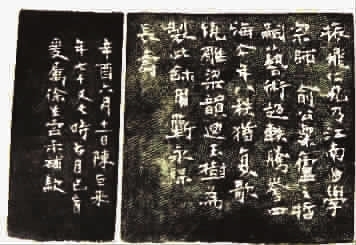 振飛仁兄乃江南曲學
宗師 俞公粟廬之哲
嗣藝術超軼騰聲四
海今年八秩猶歌
繞雕梁韻迴玉樹為
製此鉨用蘄永保
長壽
辛酉六月二日陳巨來
年七十又七時目已盲
爰屬徐生補款